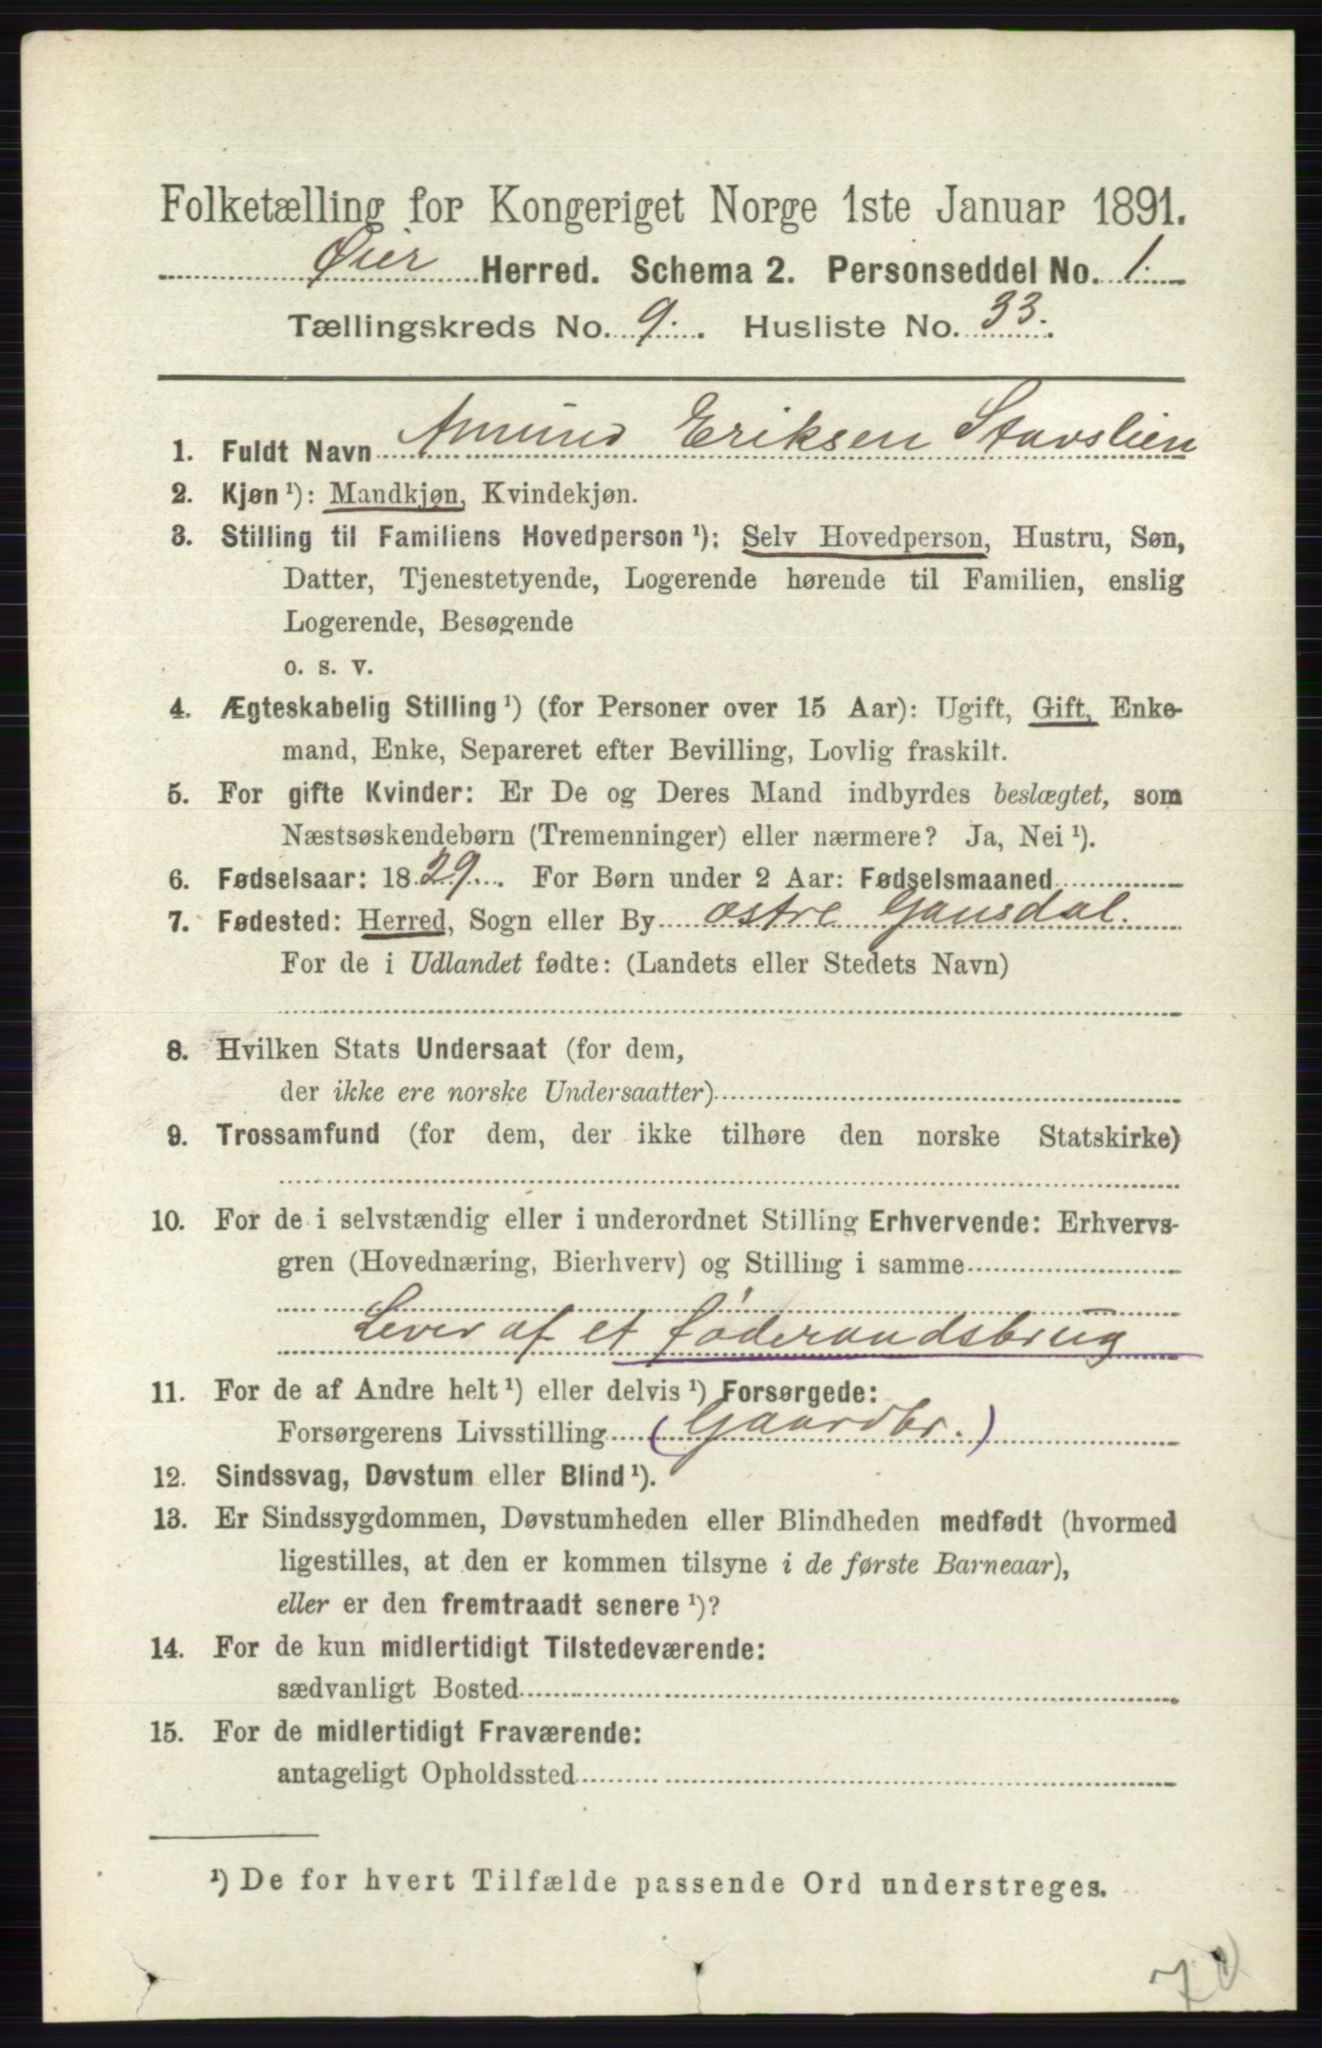 Folketælling for Kongeriget Norge 1ste Januar 1891.
Øier Herred. Schema 2. Personseddel No. 1.
Tællingskreds No. 9. Husliste No. 33.
1. Fuldt Navn Amund Eriksen Stavslien
2. Kjøn ¹): Mandkjøn, Kvindekjøn.
3. Stilling til Familiens Hovedperson ¹): Selv Hovedperson, Hustru, Søn,
Datter, Tjenestetyende, Logerende hørende til Familien, enslig
Logerende, Besøgende
o. s. v.
4. Ægteskabelig Stilling ¹) (for Personer over 15 Aar): Ugift, Gift, Enke-
mand, Enke, Separeret efter Bevilling, Lovlig fraskilt.
5. For gifte Kvinder: Er De og Deres Mand indbyrdes beslægtet, som
Næstsøskendebørn (Tremenninger) eller nærmere? Ja, Nei ¹).
6. Fødselsaar: 1829. For Børn under 2 Aar: Fødselsmaaned
7. Fødested: Herred, Sogn eller By østre Gausdal.
For de i Udlandet fødte: (Landets eller Stedets Navn)
8. Hvilken Stats Undersaat (for dem,
der ikke ere norske Undersaatter)
9. Trossamfund (for dem, der ikke tilhøre den norske Statskirke)
10. For de i selvstændig eller i underordnet Stilling Erhvervende: Erhvervs-
gren (Hovednæring, Bierhverv) og Stilling i samme
Lever af et föderaadsbrug
11. For de af Andre helt ¹) eller delvis ¹) Forsørgede:
Forsørgerens Livsstilling (Gaardbr.)
12. Sindssvag, Døvstum eller Blind ¹).
13. Er Sindssygdommen, Døvstumheden eller Blindheden medfødt (hvormed
ligestilles, at den er kommen tilsyne i de første Barneaar),
eller er den fremtraadt senere ¹)?
14. For de kun midlertidigt Tilstedeværende:
sædvanligt Bosted
15. For de midlertidigt Fraværende:
antageligt Opholdssted
¹) De for hvert Tilfælde passende Ord understreges.